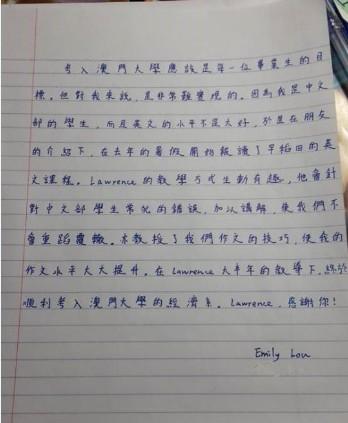 考入澳門大學應該是每一位畢業生的目
標。但對我來說，是非常難實現的。因為我是中文
部的學生，而且英文的水平不是太好，於是在朋友
的介紹下，在去年的暑假開始報讀了早稻田的英
文課程。Lawrence的教學方式生動有趣，他會針
對中文部學生常犯的錯誤，加以講解，使我們不
會重蹈覆轍。亦教授了我們作文的技巧，使我的
作文水平大大提升。在Lawrence大半年的教導下，終於
順利考入澳門大學的經濟系。Lawrence，感謝你！
Emily Lou